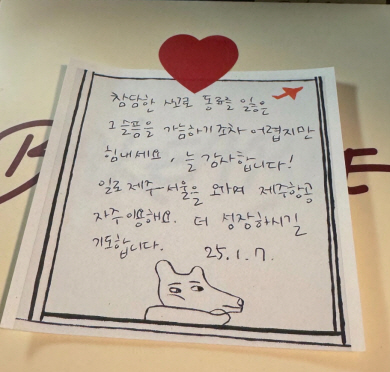 참담한 사고로 동료를 잃은
그 슬픔을 가늠하기조차 어렵지만
힘내세요, 늘 감사합니다!
일로 제주-서울을 오가며 제주항공
자주 이용해요. 더 성장하시길
기도합니다. 25.1.7.